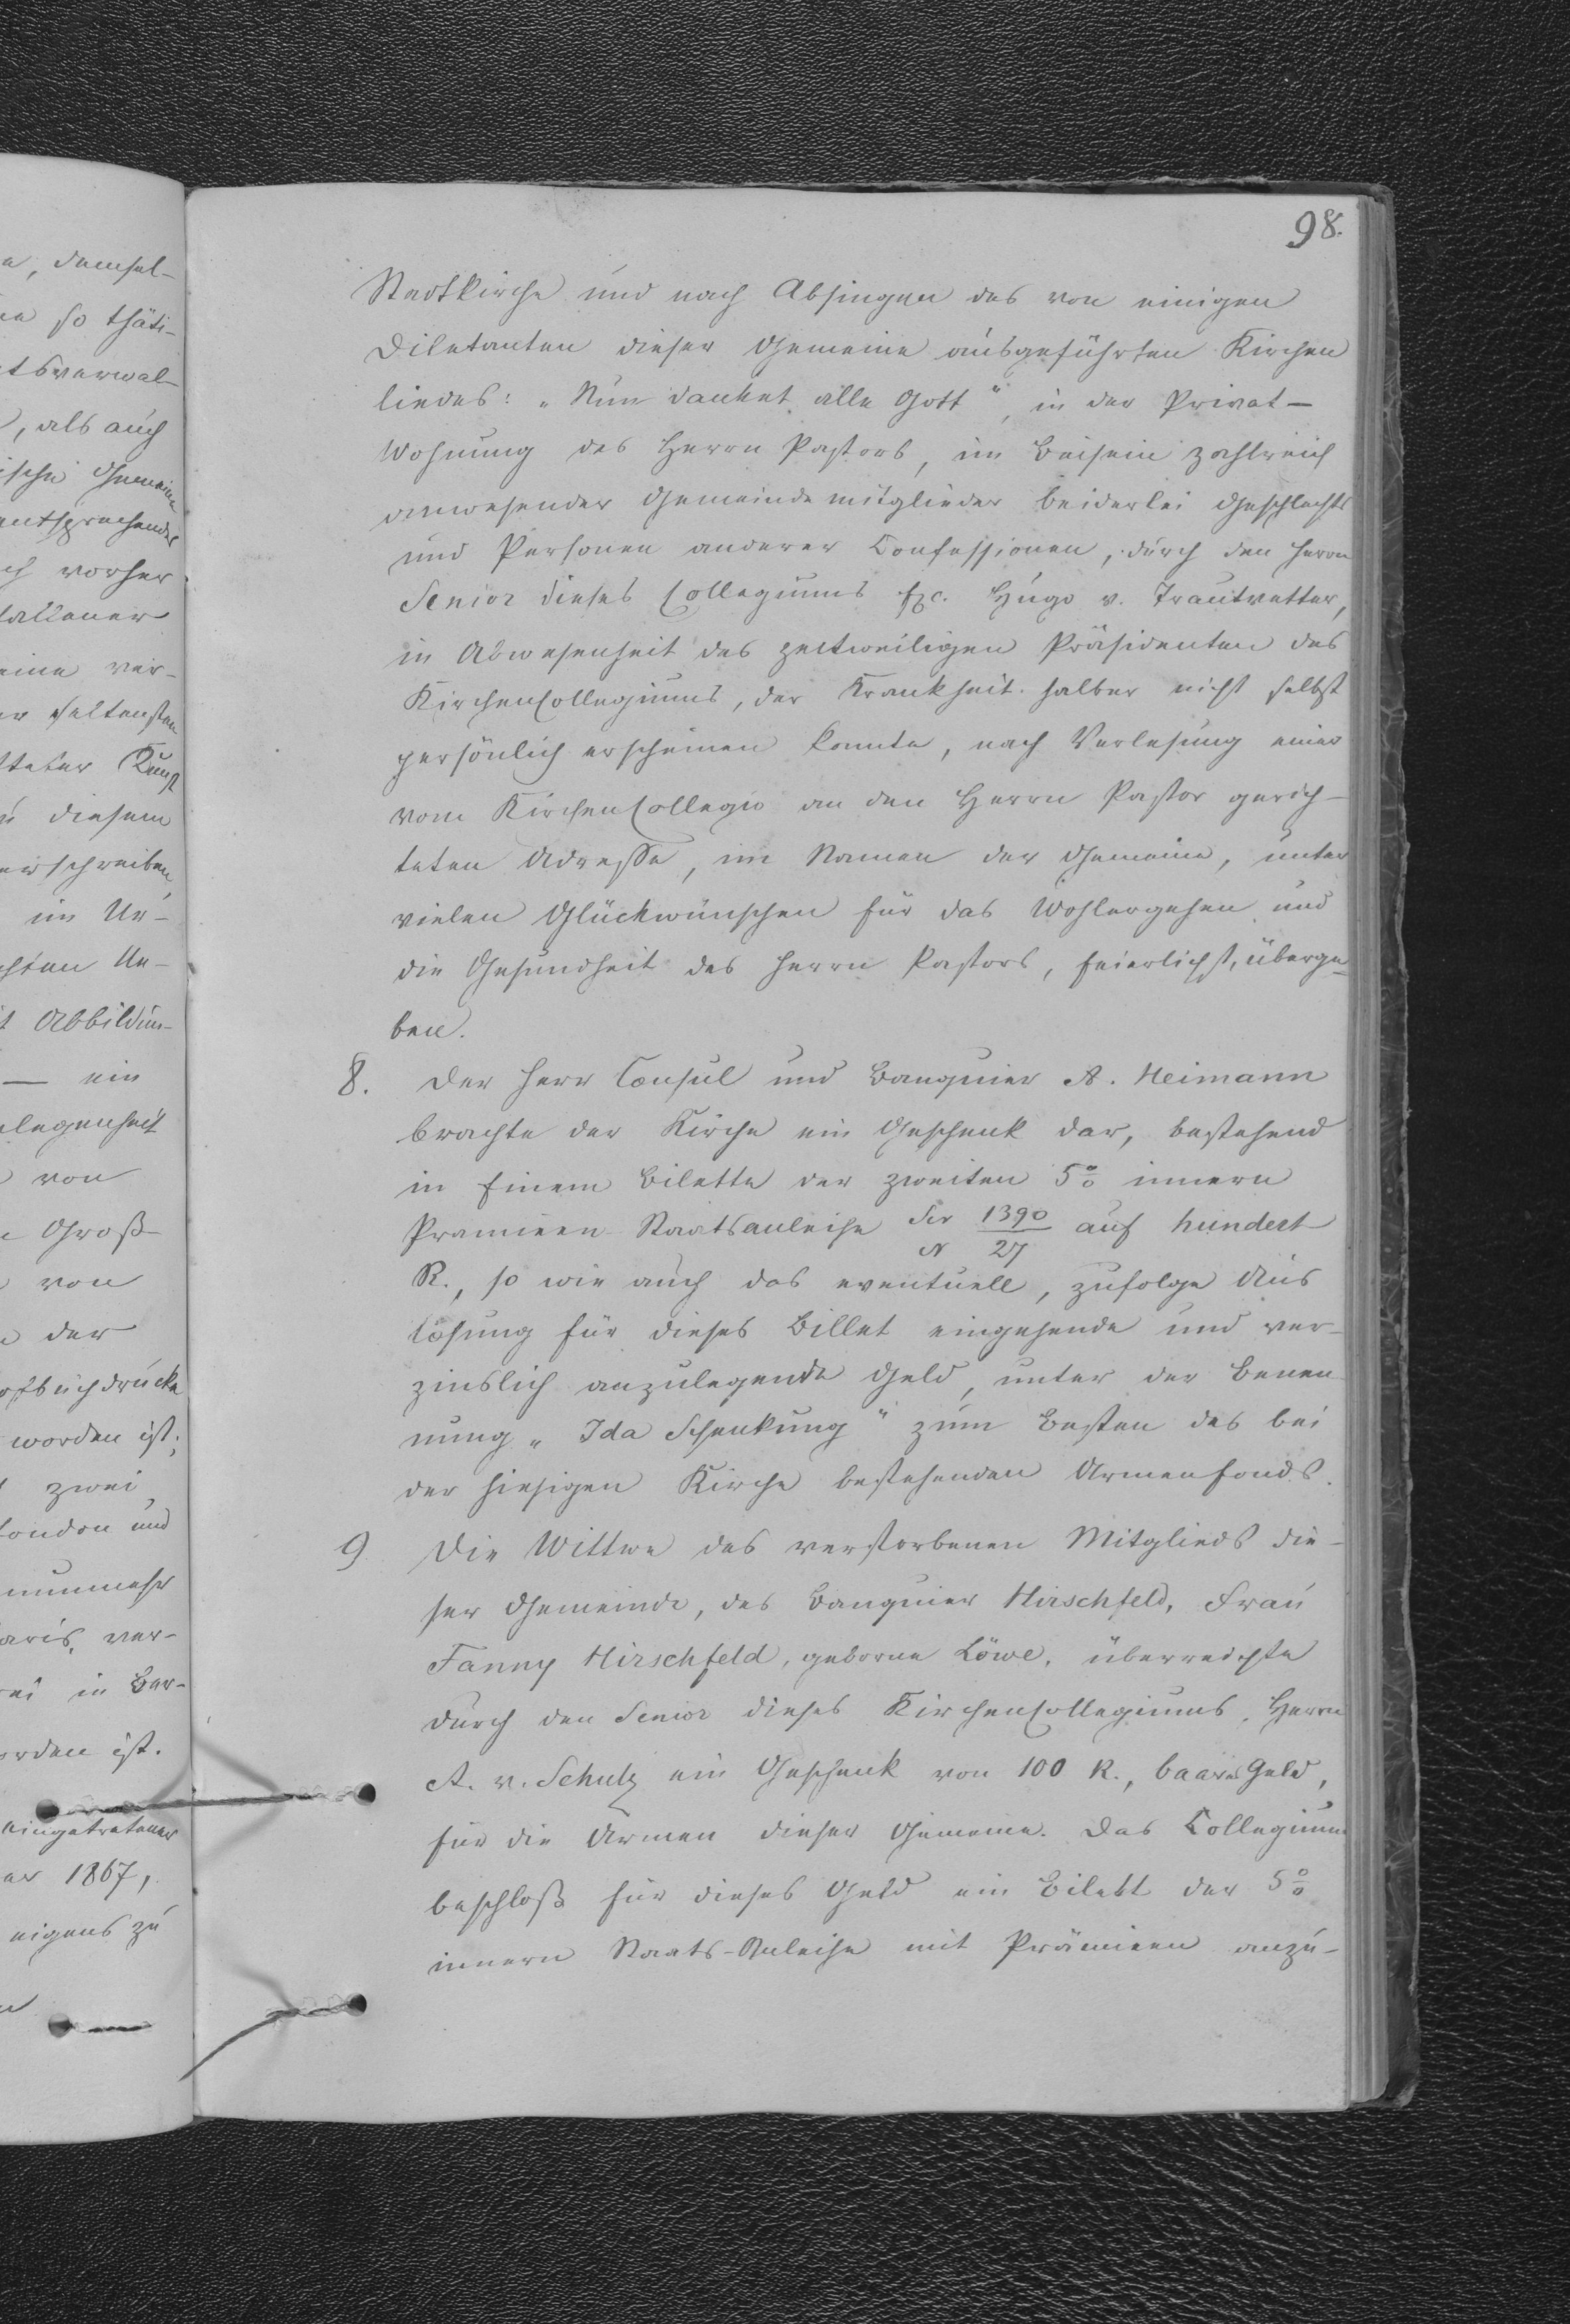 98.
Stadtkirche und nach Absingen des von einigen
Diletanten dieser Gemeine ausgeführten Kirchen
liedes: „Nun danket alle Gott", in der Privat-
Wohnung des Herrn Pastors, im Beisein zahlreich
anwesender Gemeindemitglieder beiderlei Geschlechts
und Personen anderer Confessionen, durch den Herrn
Senior dieses Collegiums Exc. Hugo v. Trautvetter,
in Abwesenheit des zeitweiligen Präsidenten des
KirchenCollegiums, der Krankheit halber nicht selbst
persönlich erscheinen konnte, nach Verlesung einer
vom KirchenCollegio an den Herrn Pastor gerich-
teten Adresse, im Namen der Gemeine, unter
vielen Glückwünschen für das Wohlergehen und
die Gesundheit des Herrn Pastors, feierlichst, überge-
ben.
8. Der Herr Consul und Banquier A. Heimann
brachte der Kirche ein Geschenk dar, bestehend
in Einem Bilette der zweiten 5% innern
Pramieen-Staatsanleihe Ser 1390 / N 27 auf hundert
R., so wie auch das eventuell, zufolge Aus
losung für dieses Billet eingehende und ver-
zinslich anzulegende Geld, unter der Benen
nung „Ida Schenkung" zum Besten des bei
der hiesigen Kirche bestehenden Armenfonds.
9 Die Wittwe des verstorbenen Mitglieds die-
ser Gemeinde, des Banquier Hirschfeld, Frau
Fanny Hirschfeld, geborne Löwe, überreichte
durch den Senior dieses KirchenCollegiums, Herrn
A. v. Schulz ein Geschenk von 100 R., baares Geld,
für die Armen dieser Gemeine. Das Collegium
beschloß für dieses Geld ein Bilett der 5%
innern Staats-Anleihe mit Prämieen anzu-
demsel-
so thäti-
tsverwal-
, als auch
Gemeine
entsprechendes
vorher
seltensten
Kunst
diesem
im Ur-
Abbildun-
— ein
von
Groß
von
der
worden ist;
zwei
London und
nunmehr
ver-
in Ber-
orden ist.
eingetretener
1867,
eigens zu